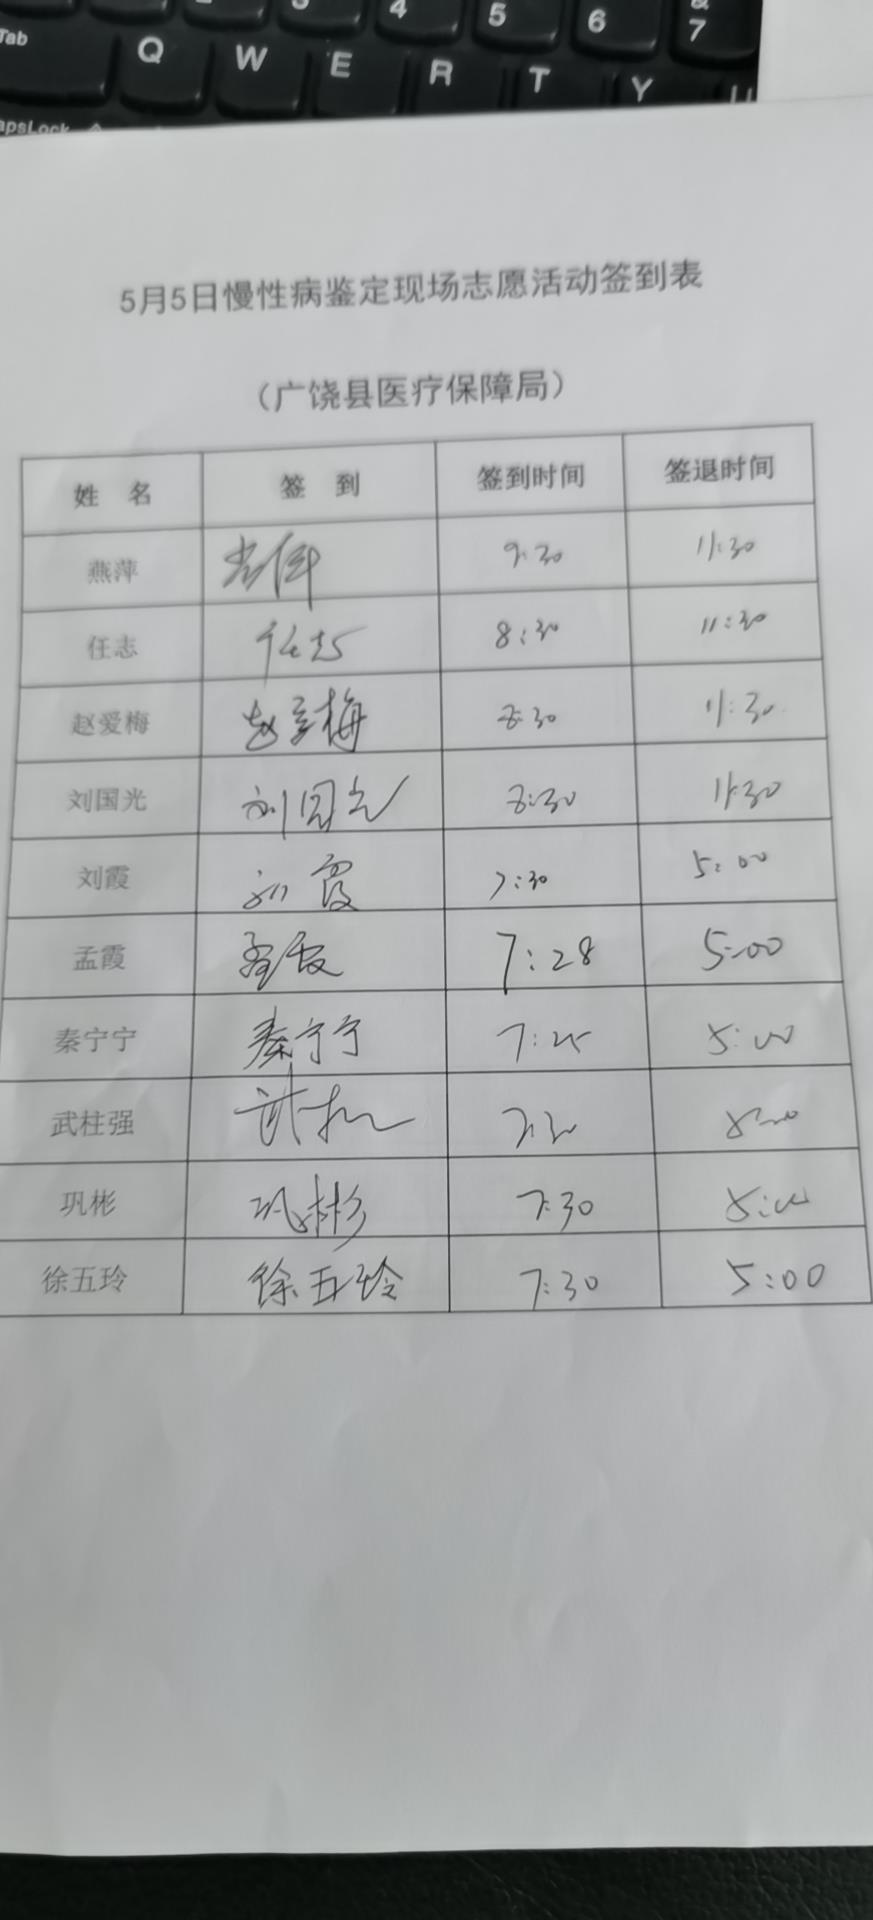 Tab Q W E R T Y U
4 5 6 & 7
CapsLock
5月5日慢性病鉴定现场志愿活动签到表
（广饶县医疗保障局）
姓 名 签 到 签到时间 签退时间
燕萍 9:30 11:30
任志 任志 8:30 11:30
赵爱梅 赵爱梅 8:30 11:30
刘国光 刘国光 8:30 11:30
刘霞 刘霞 7:30 5:00
孟霞 孟霞 7:28 5:00
秦宁宁 秦宁宁 7:25 5:00
武柱强 5:00
巩彬 巩彬 7:30 5:00
徐五玲 徐五玲 7:30 5:00